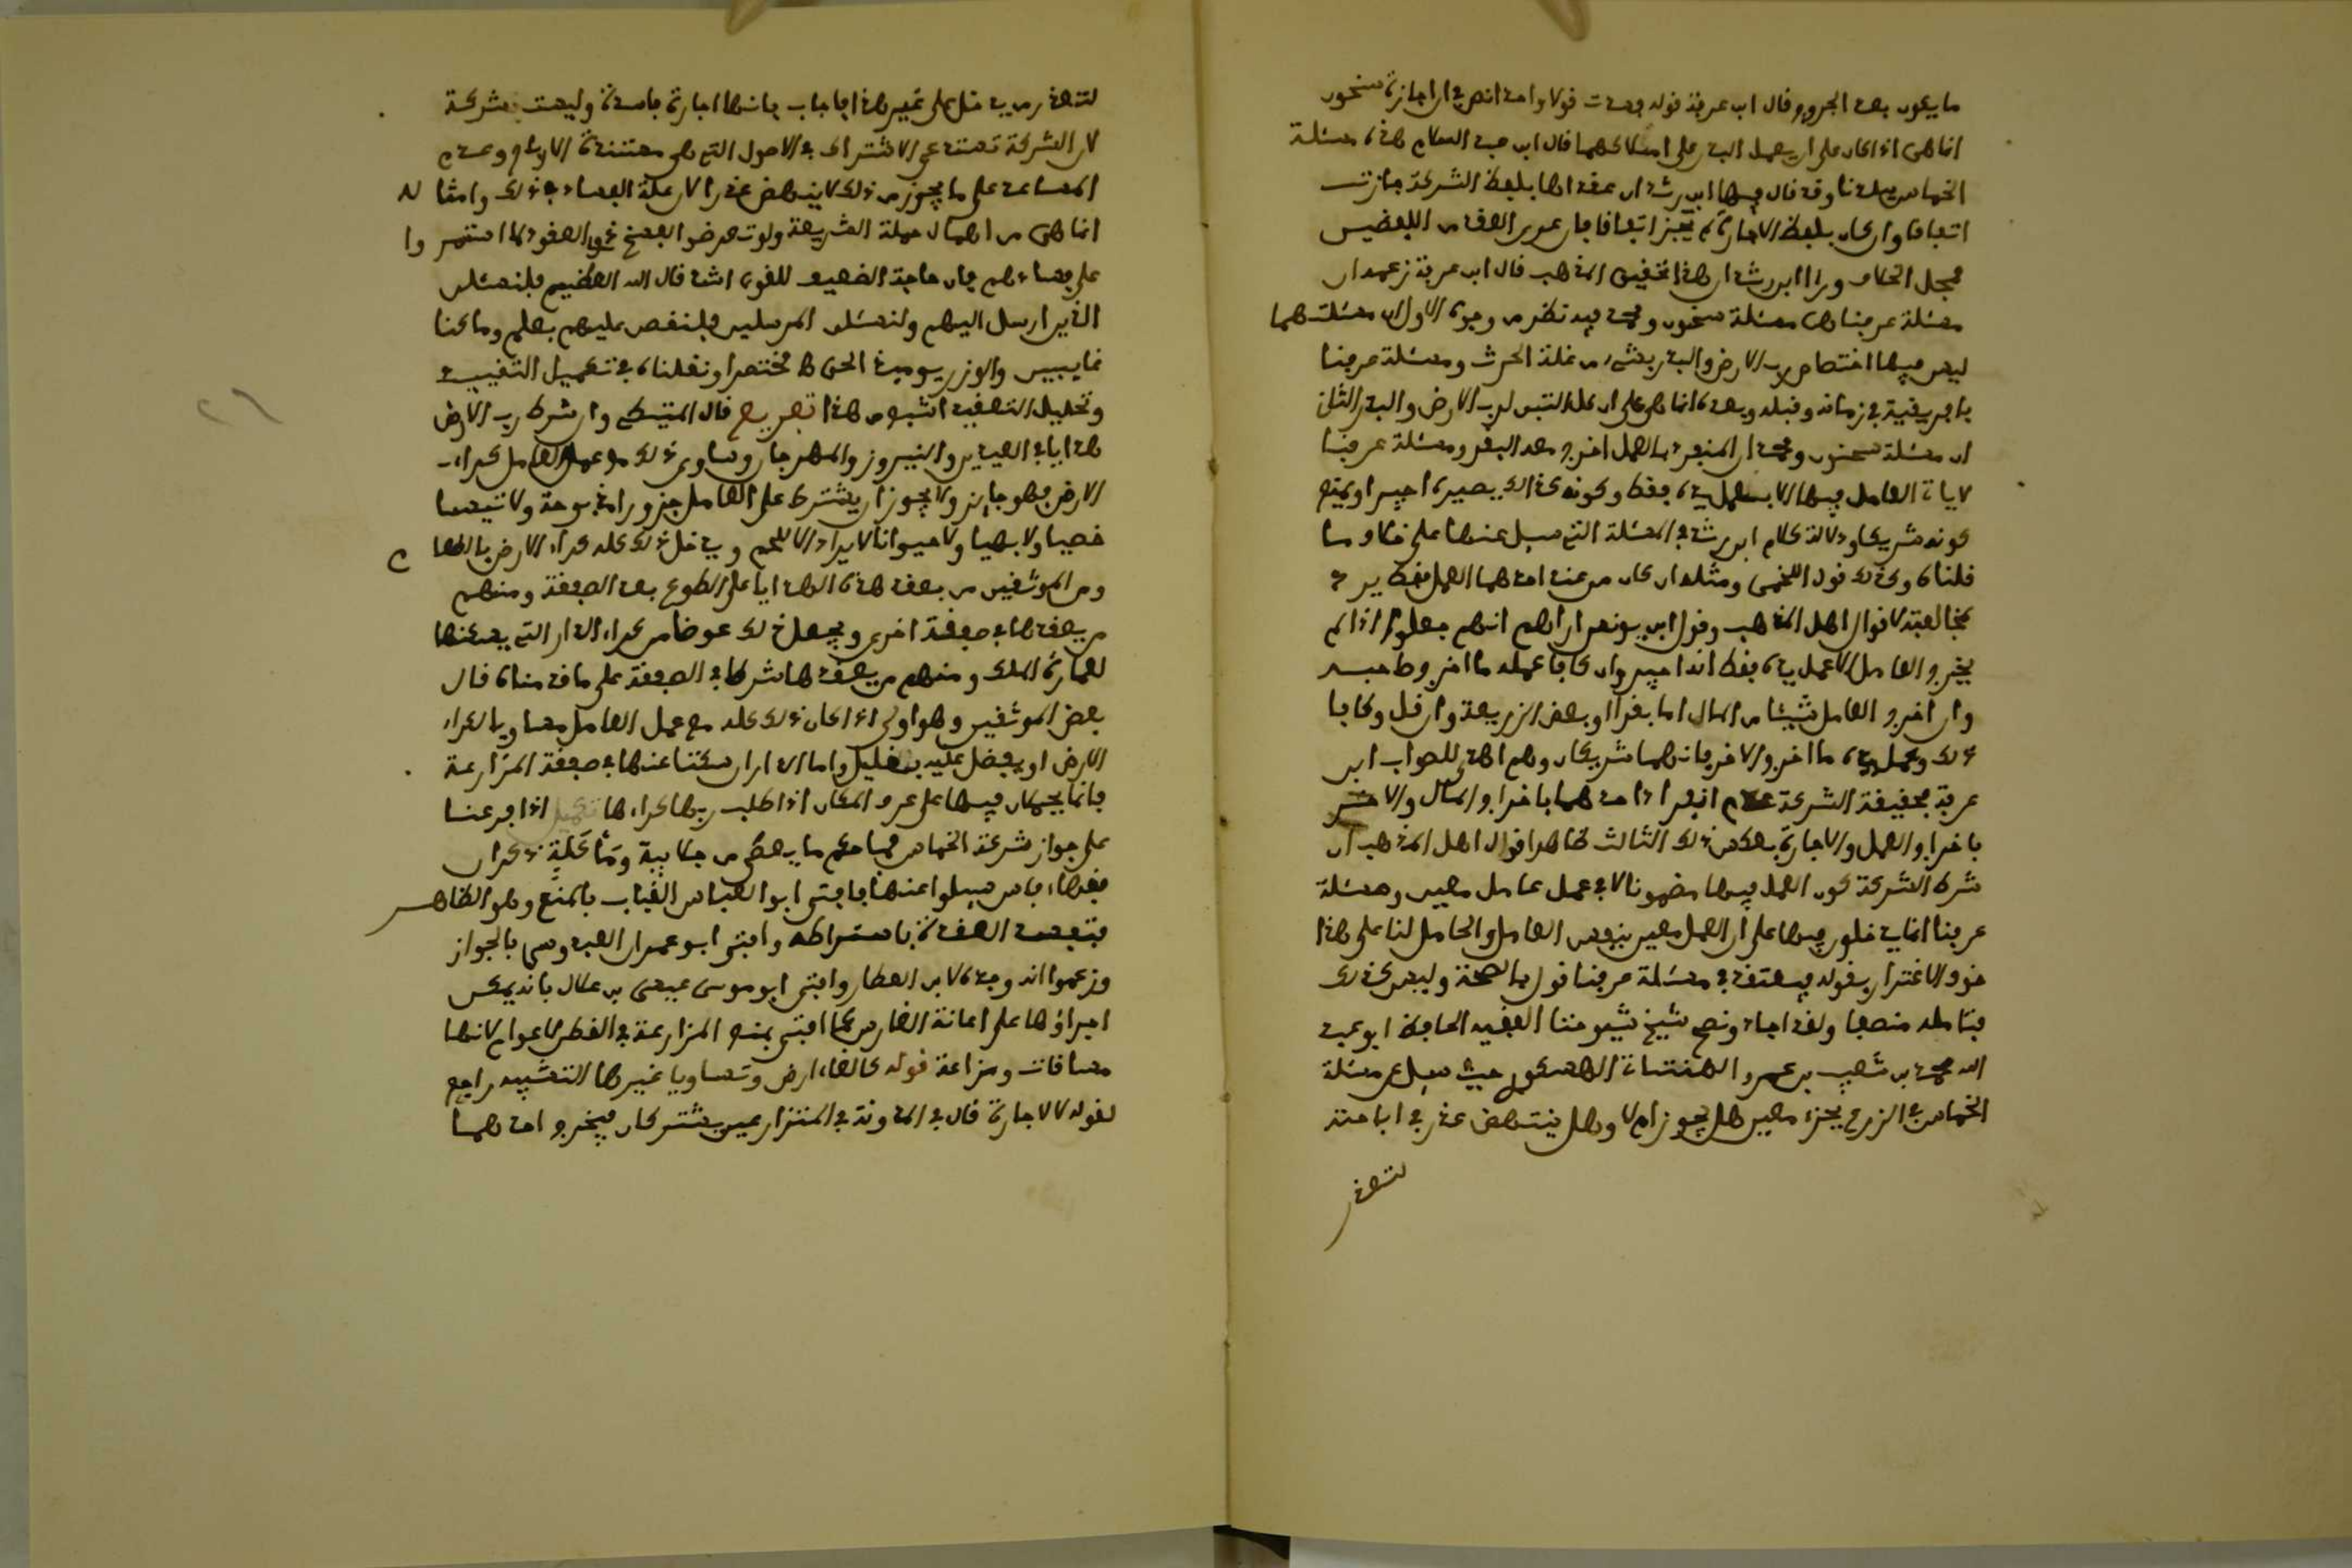 ما يكون بعد الحرث وقال ابن عرفة قوله فسدت قولا واحدا نص في ان اجازة سحنون
انما هي اذا كان على ان يعمل البدن على املاكهما قال ابن عبد السلام هذه مسئلة
الخماس ببلدنا وقد قال فيها ابن رشد ان عقداها بلفظ الشركة جازت
اتفاقا وان كان بلفظ الاجارة لم تجز اتفاقا فان عري العقد من اللفظين
فمحل الخلاف ورأى ابن رشد ان هذا تحقيق المذهب قال ابن عرفة زعمه ان
مسئلة عرفنا هي مسئلة سحنون ومحمد فيه نظر من وجوه الاول ان مسئلتهما
ليس فيها اختصاص رب الارض والبذر بشيء من غلة الحرث ومسئلة عرفنا
بافريقية في زماننا وقبله وبعده انما هي على ان كل التبن لرب الارض والبذر الثاني
ان مسئلة سحنون ومحمد ان المنفرد بالعمل اخرج معه البقر ومسئلة عرفنا
لا ياتي العامل فيها الا بعمل يده فقط وكونه كذلك يصيره اجيرا ويمنع
كونه شريكا ودلالة كلام ابن رشد في المسئلة التي سيل عنها على خلاف ما
قلناه وكذلك قول اللخمي ومثله ان كان من عند احدهما العمل فقط يرد
بمخالفته لاقوال اهل المذهب وقول ابن يونس ان رأيهم انهم جعلوا اذا لم
يخرج العامل الا عمل يده فقط انه اجير وان كافا عمله ما اخرج صاحبه
وان اخرج العامل شيئا من المال اما بقرا او بعض الزريعة وان قل وكافا
ذلك وعمل يده ما اخرج الاخر فانهما شريكان وهم اهدى للصواب ابن
عرفة فحقيقة الشركة عدم انفراد احدهما باخراج المال والاخر
باخراج العمل والاجارة بعكس ذلك الثالث ظاهر اقوال اهل المذهب ان
شرط الشركة كون العمل فيها مضمونا لا في عمل عامل معين ومسئلة
عرفنا انما يدخلون فيها على ان العمل معين بنفس العامل والحامل لنا على هذا
خوف الاغترار بقوله فيعتقد في مسئلة عرفنا قول بالصحة وليس كذلك
فتامله منصفا ولقد اجاد ونصح شيخ شيوخنا الفقيه الحافظ ابو عبد
الله محمد بن شعيب بن عمرو الهنتاتي الهسكوري حيث سيل عن مسئلة
الخماس في الزرع بجزء معين هل يجوز ام لا وهل ينتهض عذر في اباحته
لتعذر
لتعذر من يدخل على غير هذا فاجاب بانها اجارة فاسدة وليست بشركة
لان الشركة تستدعي الاشتراك في الاصول التي هي مستندة الارباح وعدم
المساعد على ما يجوز من ذلك لا ينهض عذرا لان غلبة الفساد في ذلك وامثاله
انما هي من اهمال حملة الشريعة ولو تعرضوا لفسخ عقود الفساد لما استمروا
على فسادهم فان حاجة الضعيف للقوي اشد قال الله العظيم فلنسئلن
الذين ارسل اليهم ولنسئلن المرسلين فلنقصن عليهم بعلم وما كنا
غايبين والوزن يومئذ الحق مختصرا ونقلناه في تكميل التقييد
وتحليل التعقيد اشبع من هذا تفريع قال المتيطي وان شرط رب الارض
هدايا في العيدين والنيروز والمهرجان وساوى ذلك مع عمل العامل كراء
الارض فهو جايز ولا يجوز ان يشترط على العامل جزورا مذبوحة ولا تيسا
خصيا ولا بهيما ولا حيوانا لا يراد الا للحم ويدخل ذلك كله كراء الارض بالطعام
ومن الموثقين من يعقد هذه الهدايا على الطوع بعد الصفقة ومنهم
من يعقدها في صفقة اخرى ويجعل ذلك عوضا من كراء الدار التي يسكنها
لعمارة الملك ومنهم من يعقدها شرطا في الصفقة على ما قدمناه قال
بعض الموثقين وهو اولى اذا كان ذلك كله مع عمل العامل مساويا لكراء
الارض او يفضل عليه بقليل واما الدار ان سكتا عنها في صفقة المزارعة
فانما يحملان فيها على عرف المكان اذا طلب ربها كراءها تكميل اذا فرعنا
على جواز شركة الخماس فما حكم ما يعطى من جلابية ومأكلة ذكر ان
فقهاء فاس سيلوا عنها فافتى ابو العباس القباب بالمنع وهو الظاهر
فتفسد العقدة باشتراطه وافتى ابو عمران العبدوسي بالجواز
وزعموا انه وجده لابن العطار وافتى ابو موسى عيسى بن علال بانه يمكن
اجراؤها على اعانة الغارس كما افتى بمنع المزارعة في القطن اعوام لانها
مساقات ومزارعة قوله كالغاء ارض وتساويا غيرها التشبيه راجع
لقوله لا الاجارة قال في المدونة في المتزارعين يشتركان فيخرج احدهما